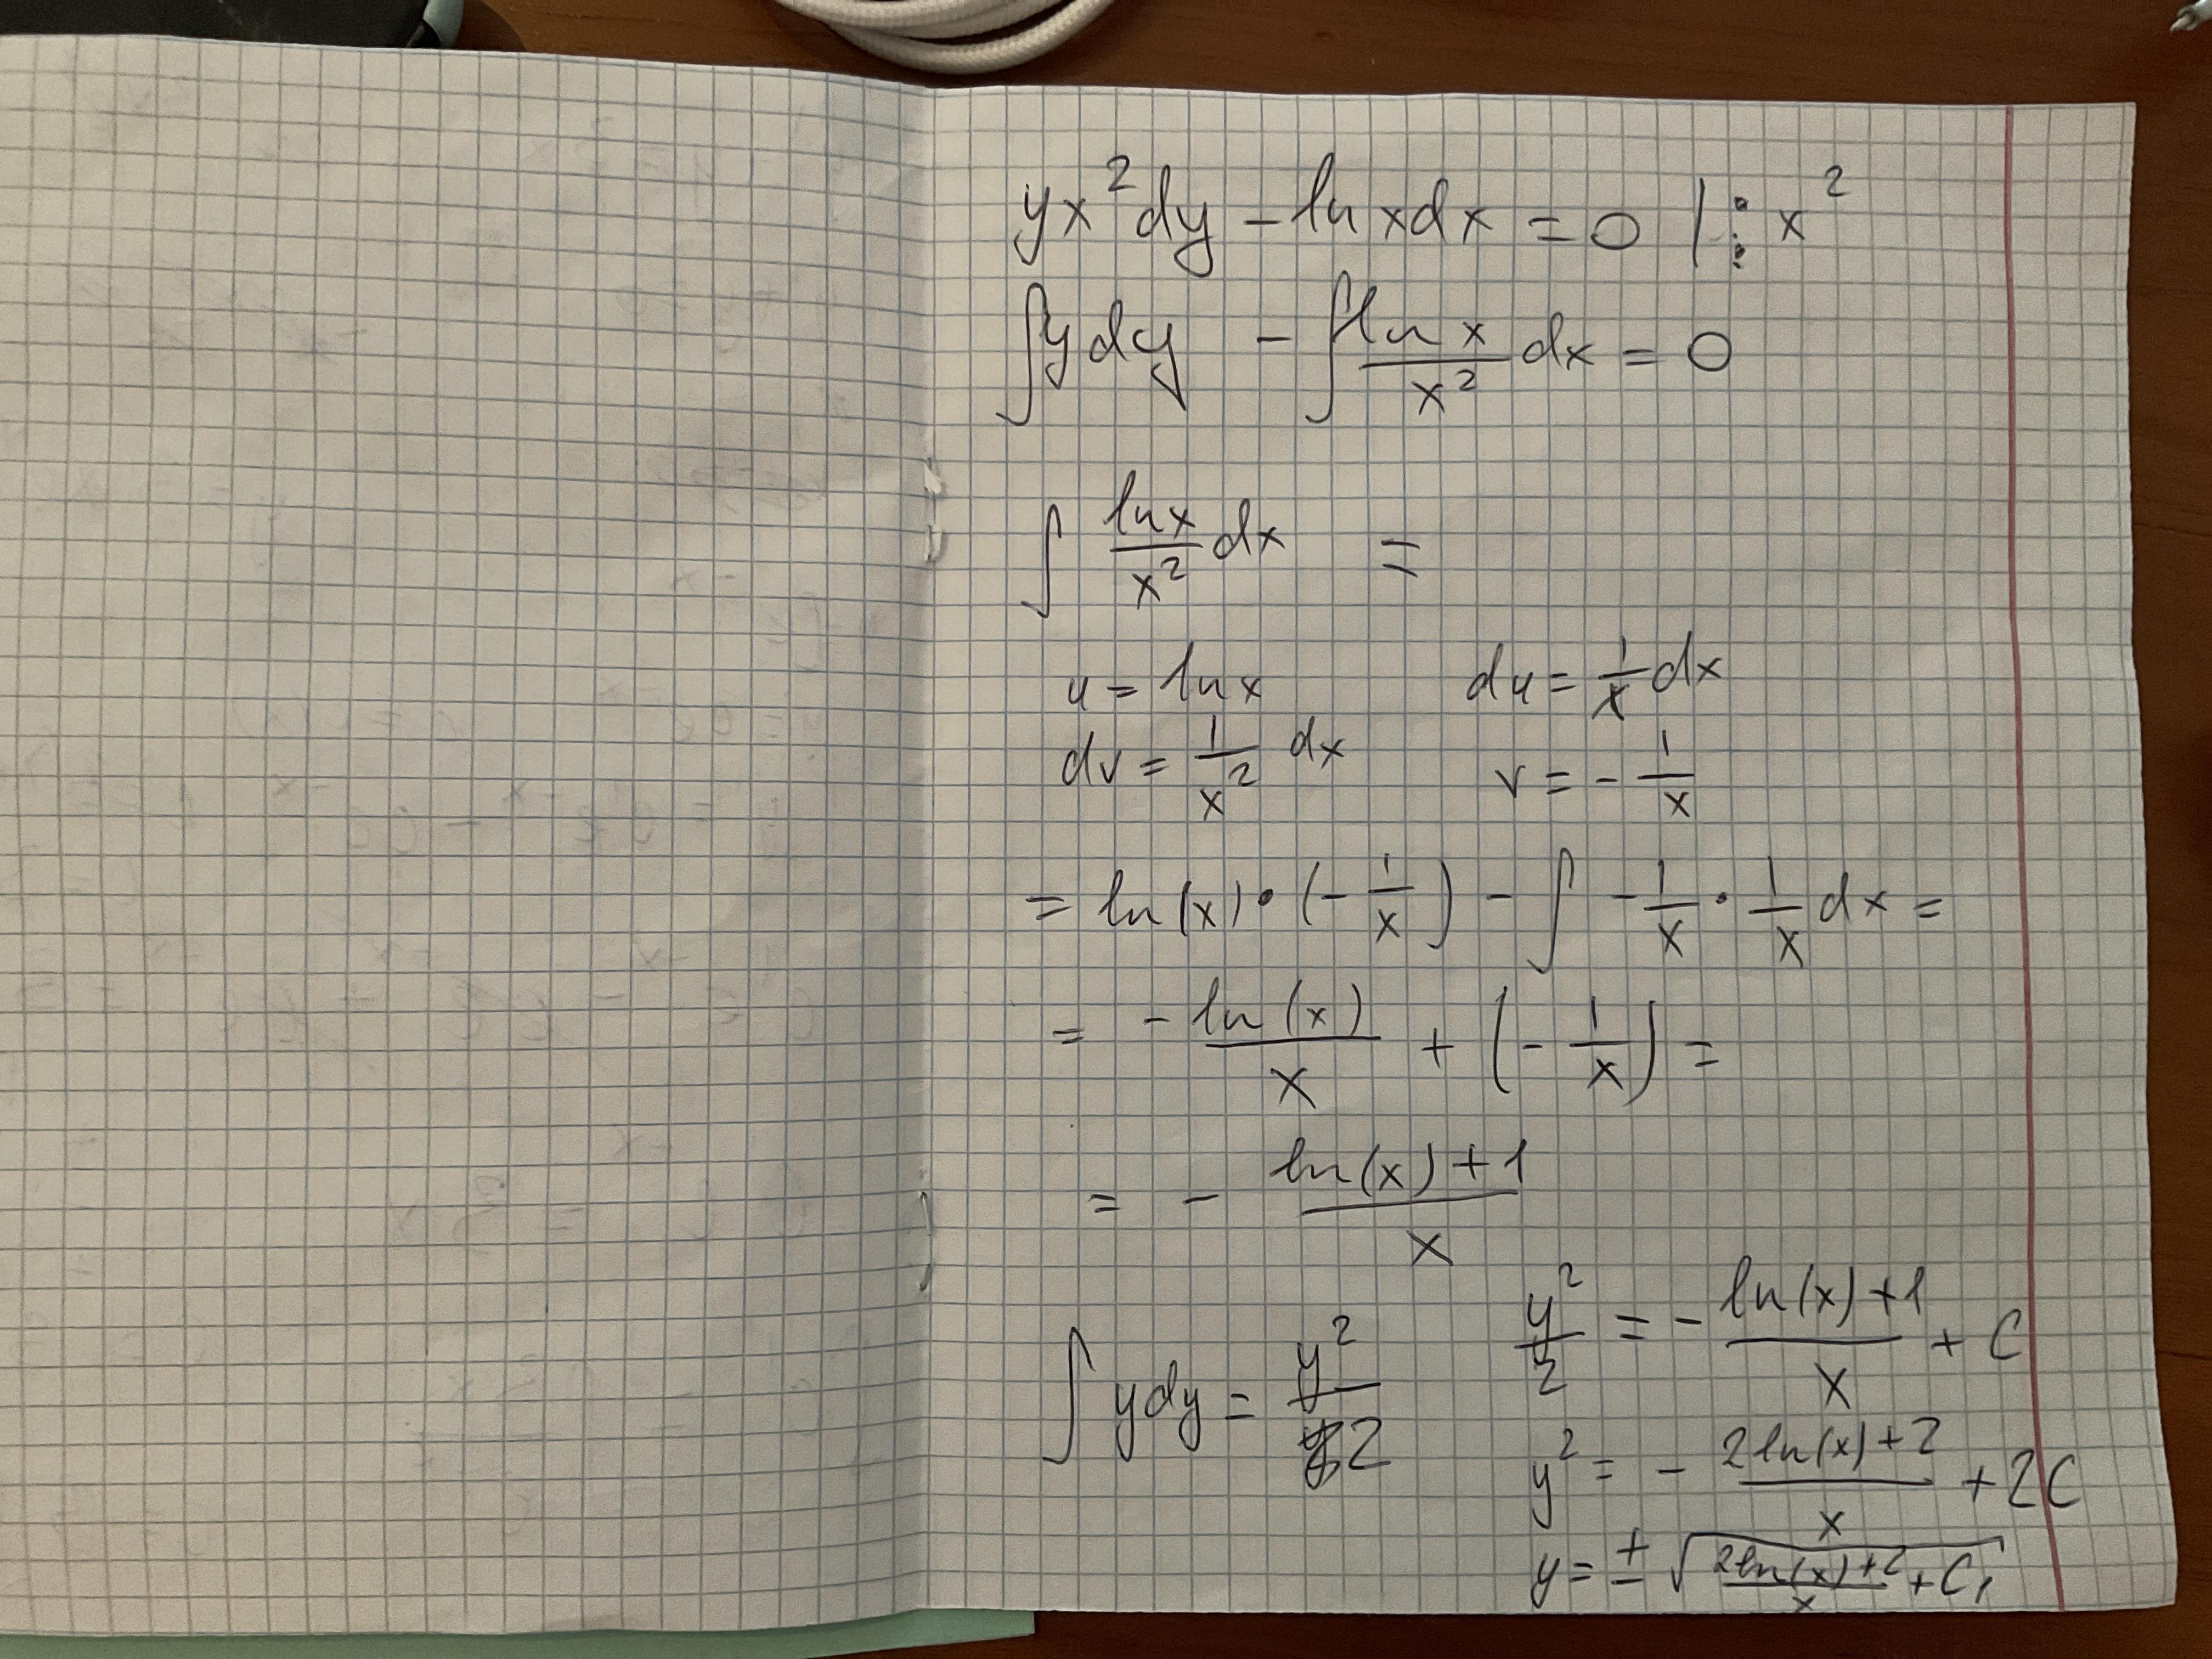 yx²dy - ln xdx = 0 |: x²
∫ydy - ∫ln x/x² dx = 0
∫ lnx/x² dx =
u = lnx du = 1/x dx
dv = 1/x² dx v = - 1/x
= ln(x)•(-1/x) - ∫ -1/x • 1/x dx =
= -ln(x)/x + (-1/x) =
= - ln(x)+1/x
∫ ydy = y²/2
y²/2 = - ln(x)+1/x + C
y² = - 2ln(x)+2/x + 2C
y = ± √(2ln(x)+2/x + C₁)